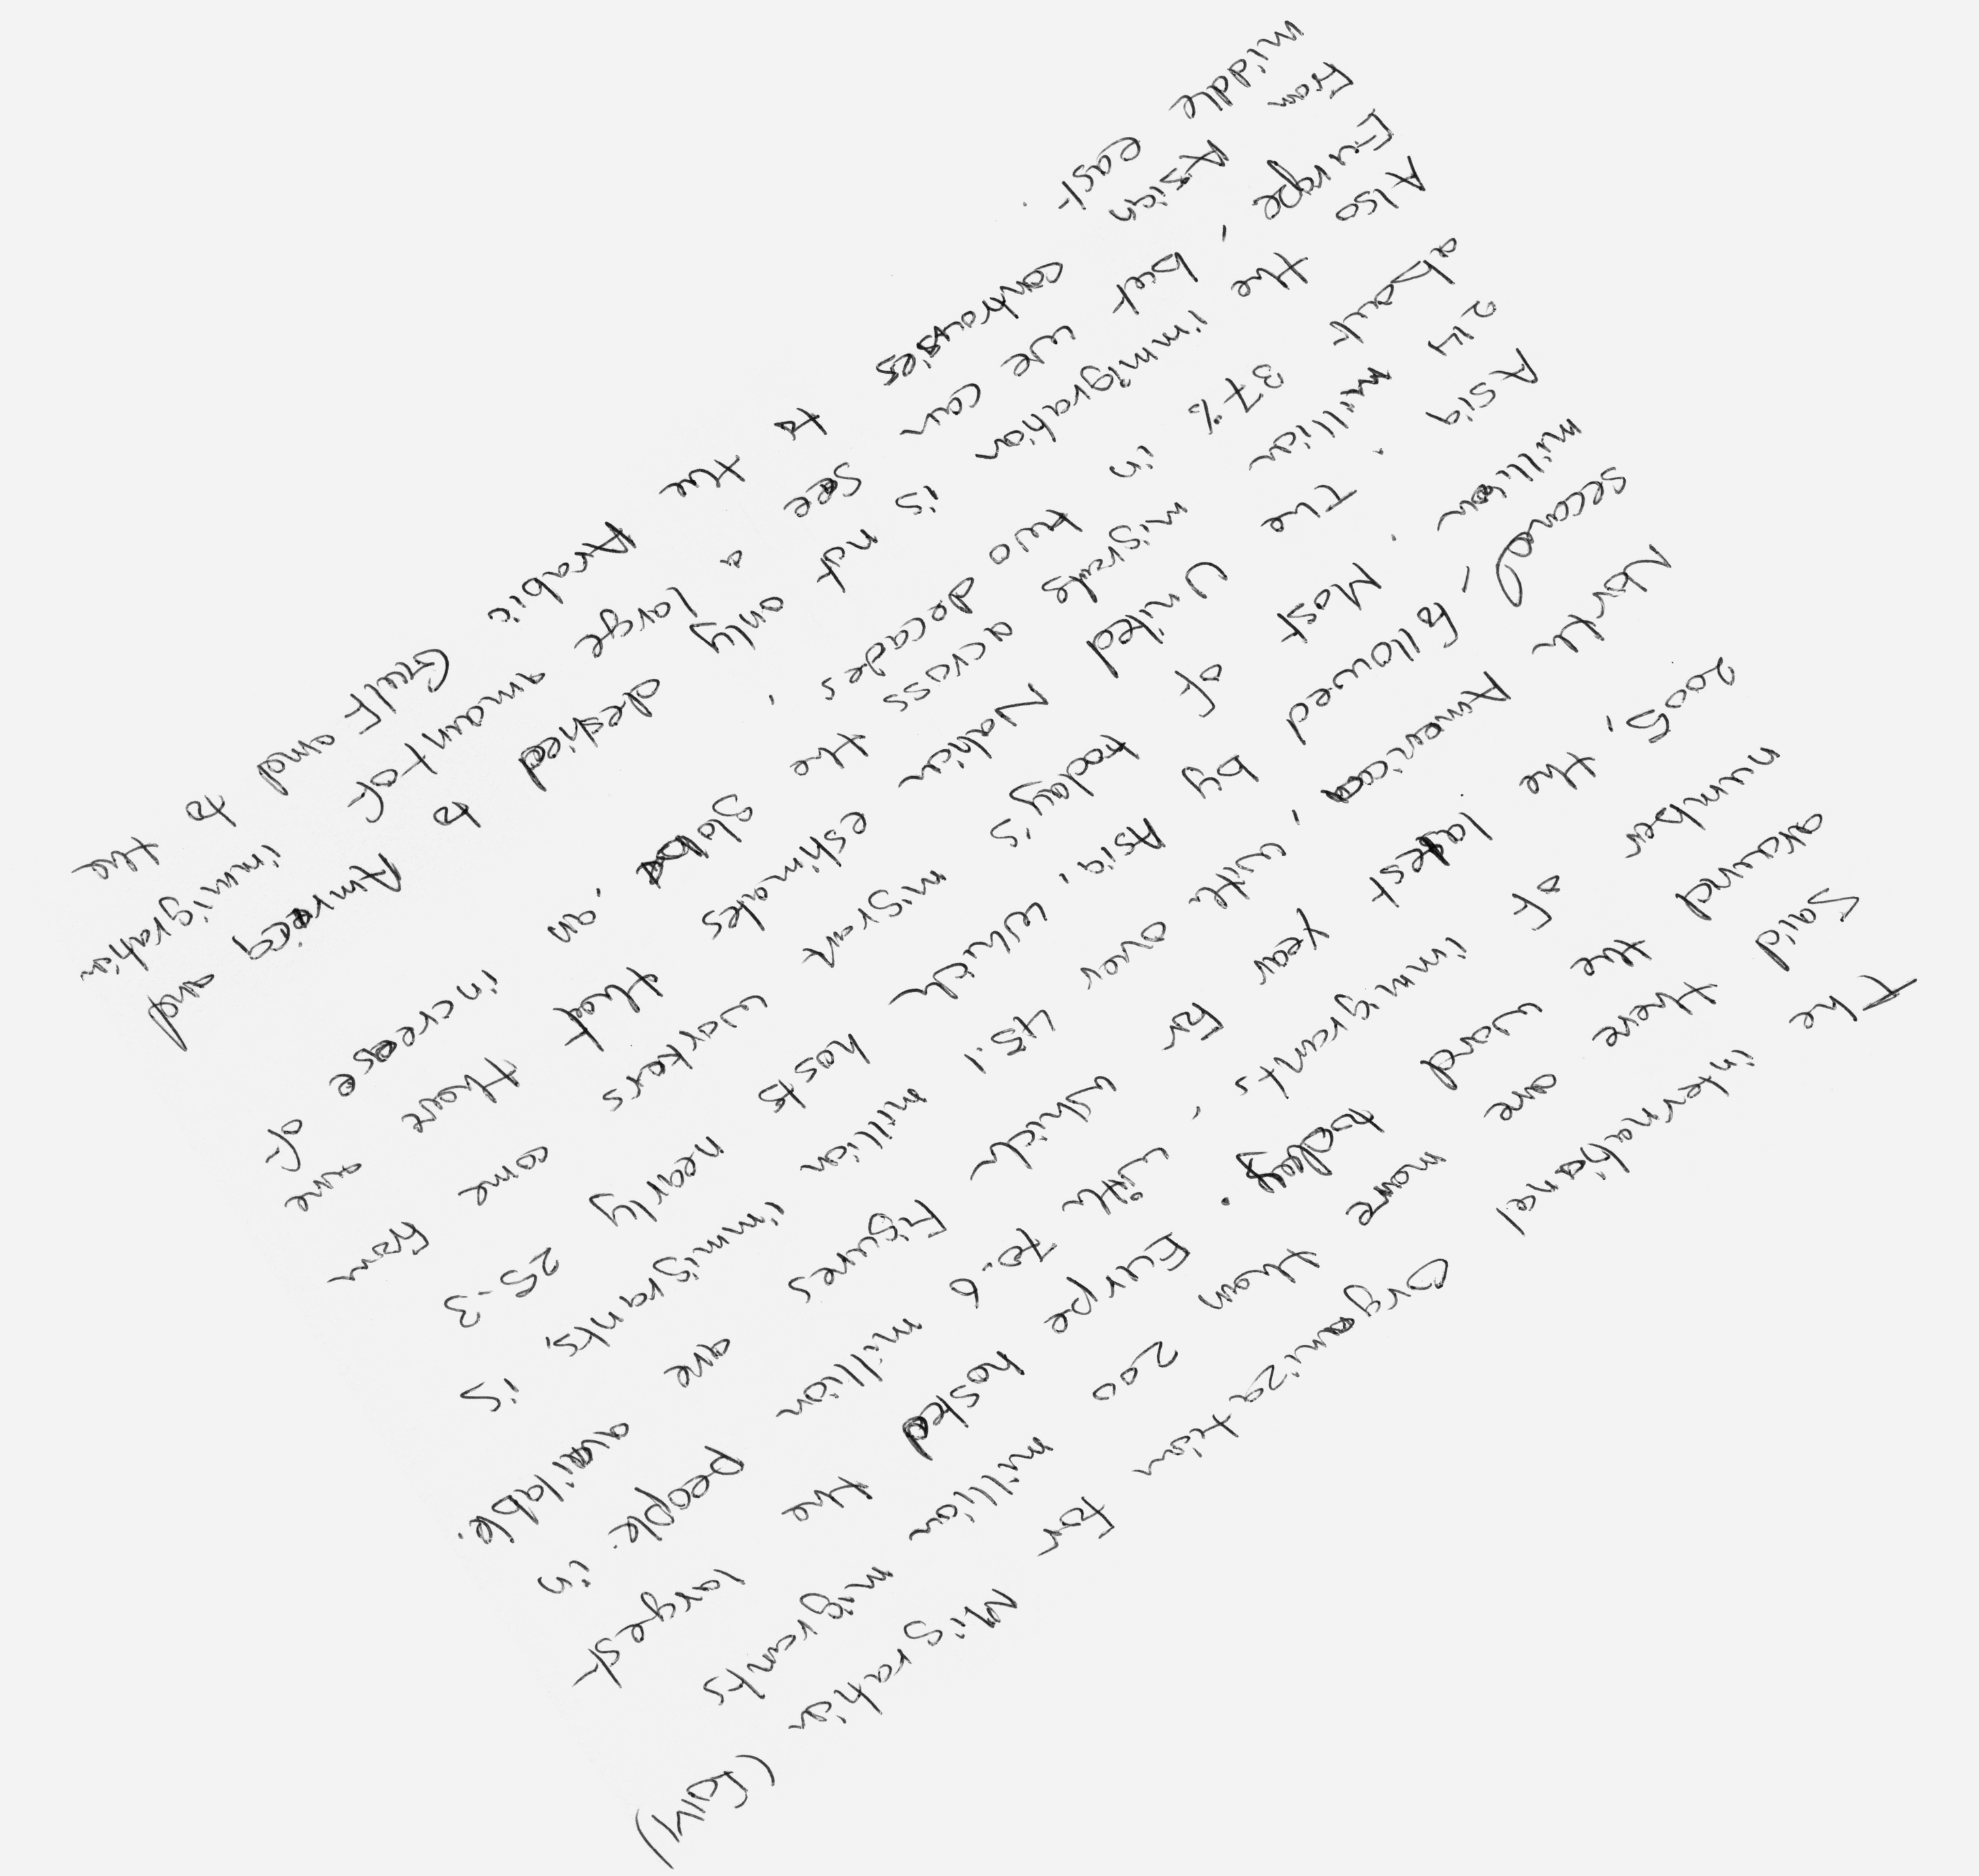 The international Organization for Migration (IOM)
Said there are more than 200 million migrants
around the word today. Europe hosted the largest
number of immigrants, with 70.6 million people in
2005, the latest year for which figures are available.
North America, with over 45.1 million immigrants, is
second, followed by Asia, which hosts nearly 25.3
million. Most of today's migrant workers come from
Asia. The United Nation estimates that there are
214 million migrants across the globe, an increase of
about 37% in two decades.
Also the immigration is not only destied to America and
Europe, but we can see a large amount of immigration
From Asian to the Arabic Gulf and to the
middle east.